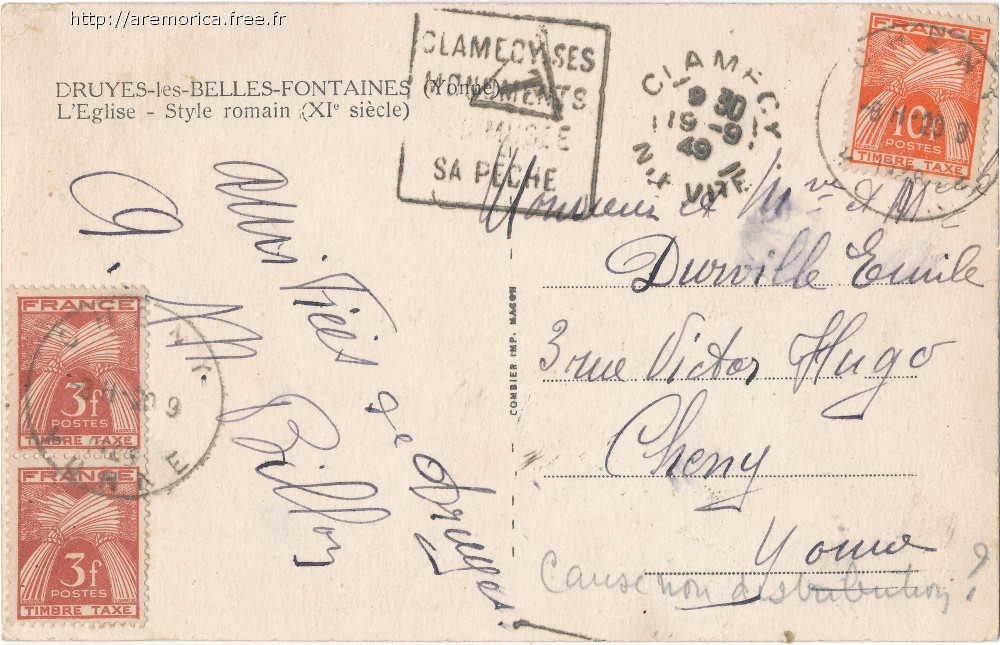 http://aremorica.free.fr
DRUYES-les-BELLES-FONTAINES (Yonne)
L'Eglise - Style romain (XIe siècle)
CLAMECY SES
MONUMENTS
MUSEE
SA PÊCHE
CLAMECY
9 30
19 -9
49
NIEVRE
10f
POSTES
TIMBRE TAXE
Monsieur et Mme et Mlle
Durville Emile
3 rue Victor Hugo
Cheny
Yonne
Cause non distribution ?
COMBIER IMP. MACON
Billon
FRANCE
3f
POSTES
TIMBRE TAXE
FRANCE
3f
POSTES
TIMBRE TAXE
CHENY
YONNE